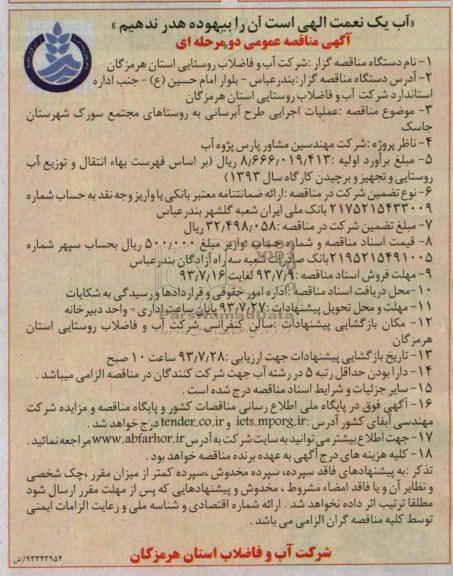 «آب یک نعمت الهی است آن را بیهوده هدر ندهیم»
آگهی مناقصه عمومی دو مرحله ای
۱- نام دستگاه مناقصه گزار :شرکت آب و فاضلاب روستایی استان هرمزگان
۲- آدرس دستگاه مناقصه گزار:بندرعباس - بلوار امام حسین (ع) - جنب اداره
استاندارد شرکت آب و فاضلاب روستایی استان هرمزگان
۳- موضوع مناقصه :عملیات اجرایی طرح آبرسانی به روستاهای مجتمع سورک شهرستان
جاسک
۴- ناظر پروژه :شرکت مهندسین مشاور پارس پژوه آب
۵- مبلغ برآورد اولیه :۸/۶۶۶/۰۱۹/۴۱۳ ریال (بر اساس فهرست بهاء انتقال و توزیع آب
روستایی و تجهیز و برچیدن کارگاه سال ۱۳۹۳)
۶- نوع تضمین شرکت در مناقصه :ارائه ضمانتنامه معتبر بانکی یا واریز وجه نقد به حساب شماره
۲۱۷۵۲۱۵۴۳۳۰۰۹ بانک ملی ایران شعبه گلشهر بندرعباس
۷- مبلغ تضمین شرکت در مناقصه :۳۲/۴۹۸/۰۵۸ ریال
۸- قیمت اسناد مناقصه و شماره حساب :واریز مبلغ ۵۰۰/۰۰۰ ریال بحساب سپهر شماره
۲۱۹۵۲۱۵۴۹۱۰۰۵ بانک صادرات شعبه سه راه آزادگان بندرعباس
۹- مهلت فروش اسناد مناقصه :۹۳/۷/۹ لغایت ۹۳/۷/۱۶
۱۰-محل دریافت اسناد مناقصه :اداره امور حقوقی و قراردادها و رسیدگی به شکایات
۱۱- مهلت و محل تحویل پیشنهادات :۹۳/۷/۲۷ پایان ساعت اداری - واحد دبیرخانه
۱۲- مکان بازگشایی پیشنهادات :سالن کنفرانس شرکت آب و فاضلاب روستایی استان
هرمزگان
۱۳- تاریخ بازگشایی پیشنهادات جهت ارزیابی :۹۳/۷/۲۸ ساعت ۱۰ صبح
۱۴- دارا بودن حداقل رتبه ۵ در رشته آب جهت شرکت کنندگان در مناقصه الزامی میباشد .
۱۵- سایر جزئیات و شرایط اسناد مناقصه درج شده است .
۱۶- آگهی فوق در پایگاه ملی اطلاع رسانی مناقصات کشور و پایگاه مناقصه و مزایده شرکت
مهندسی آبفای کشور آدرس :iets.mporg.ir و tender.co.ir درج خواهد شد .
۱۷-جهت اطلاع بیشتر می توانید به سایت شرکت به آدرس www.abfarhor.ir مراجعه نمائید.
۱۸- کلیه هزینه های درج آگهی به عهده برنده مناقصه خواهد بود .
تذکر :به پیشنهادهای فاقد سپرده، سپرده مخدوش ،سپرده کمتر از میزان مقرر ،چک شخصی
و نظایر آن و یا فاقد امضاء مشروط ، مخدوش و پیشنهادهایی که پس از مهلت مقرر ارسال شود
مطلقا ترتیب اثر داده نخواهد شد . ارائه شماره اقتصادی و شناسه ملی و رعایت الزامات ایمنی
توسط کلیه مناقصه گران الزامی می باشد .
شرکت آب و فاضلاب استان هرمزگان
۹۳۳۴۳۹۵۴/ش